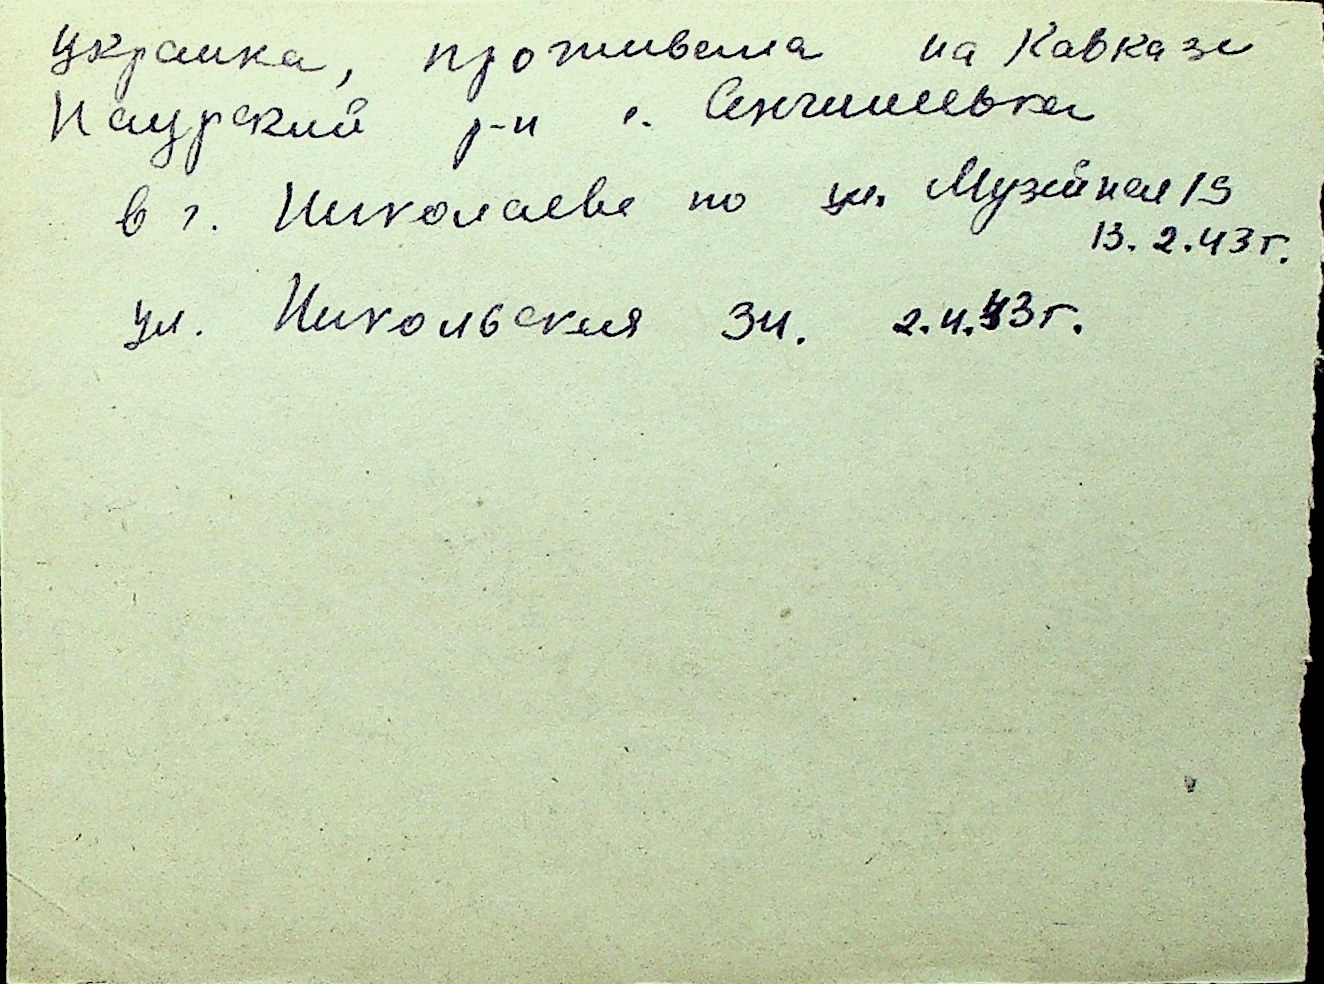 украинка, проживала на Кавказе
Наурский р-н с.
в г. Николаеве по ул. Музейная 15
13. 2. 43 г.
ул. Никольская 34. 2.4.43 г.